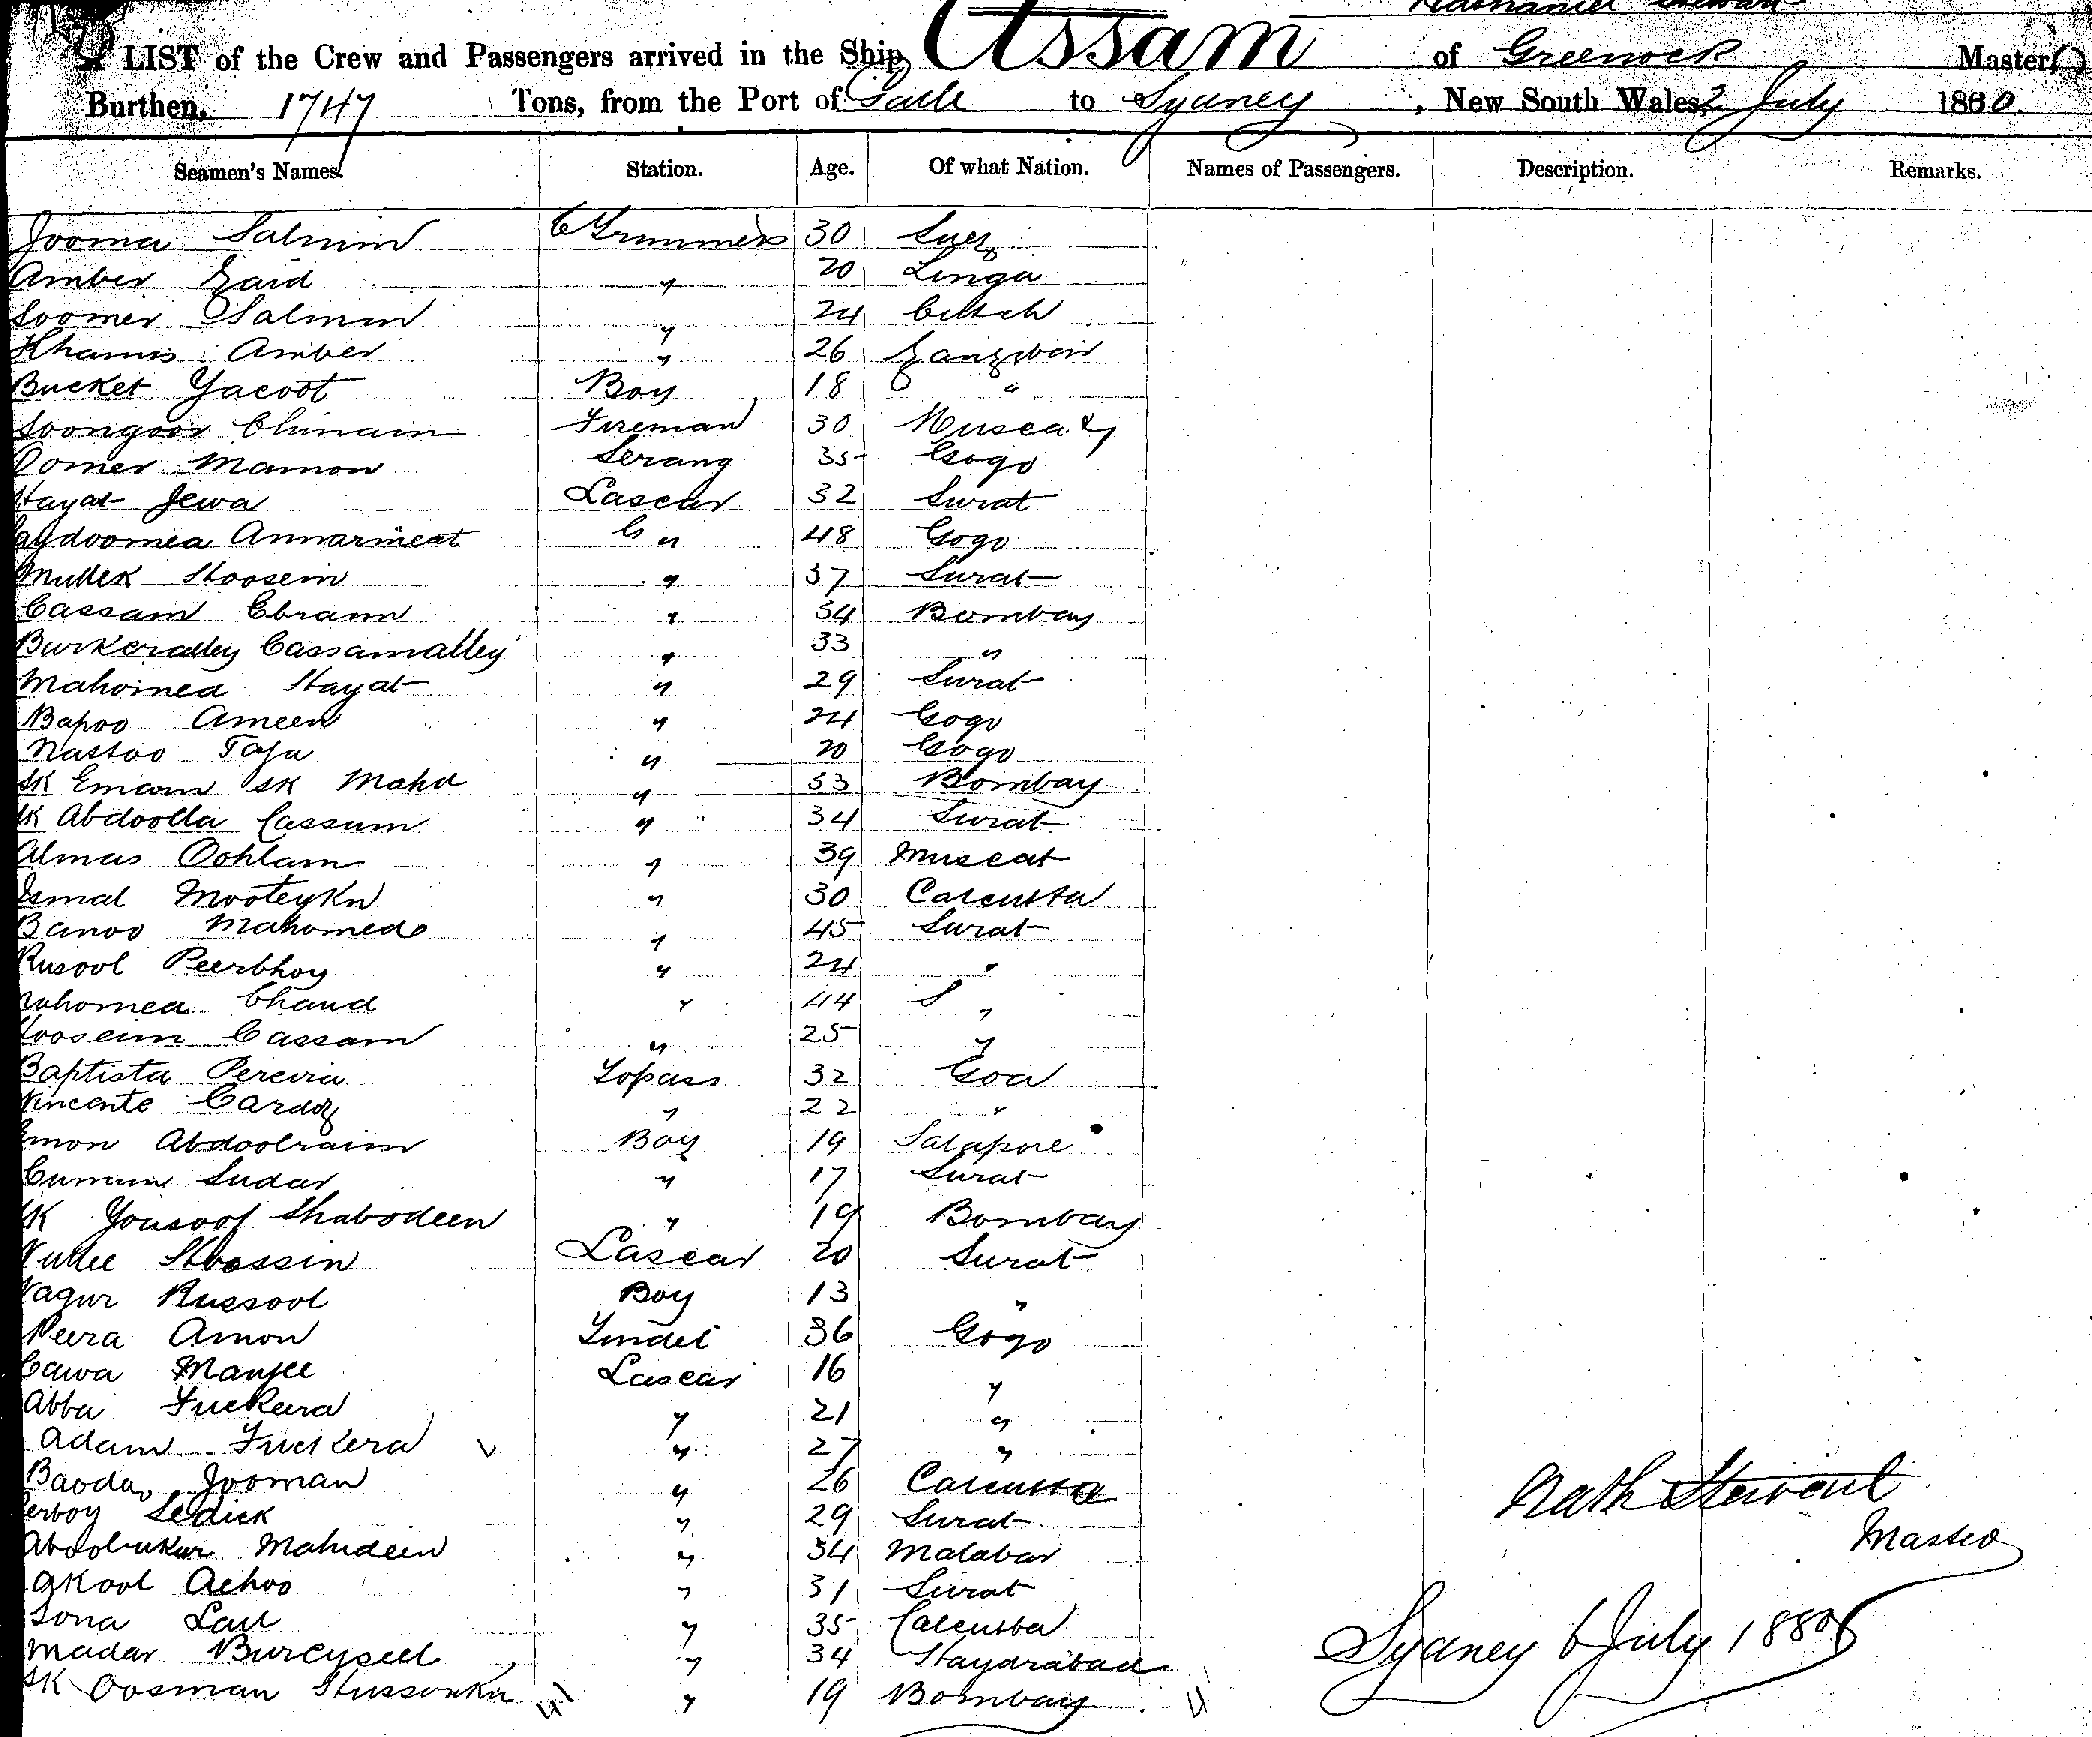 LIST of the Crew and Passengers arrived in the Ship Assam of Greenock Master
Burthen, 1747 Tons, from the Port of Galle to Sydney, New South Wales, 2 July 1880.
Seamen's Names. Station. Age. Of what Nation. Names of Passengers. Description. Remarks.
Jooma Salmin C Trimmers 30 Suez
Amber Zaid " 20 Linga
Soomer Salmin " 24 Cutch
Khamis Amber " 26 Zanzibar
Bucket Yacoot Boy 18 "
Soongoor Chinam Fireman 30 Muscat
Oomer Mamon Serang 35 Gogo
Hayat Jewa Lascar 32 Surat
" 48 Gogo
Hoosein " 37 Surat
Cassam Ebram " 34 Bombay
Burkeralley Cassamalley " 33 "
Mahomed Hayat " 29 Surat
Bapoo Ameen " 24 Gogo
Nattoo Taja " 20 Gogo
SK Emam SK Mahd " 33 Bombay
SK Abdoolla Cassum " 34 Surat
Almas Oohlam " 39 Muscat
Ismal MooteyKn " 30 Calcutta
Banoo Mahomed " 45 Surat
Rusool Peerbhoy " 24 "
Mahomed Chand " 44 S "
Hoosein Cassam " 25 "
Baptista Pereira Topass 32 Goa
Vincente Cardoz " 22 "
Abdoolraim Boy 19
Sudar " 17 Surat
SK Yousoof Shabodeen " 19 Bombay
Hoossin Lascar 20 Surat
Russool Boy 13 "
Peera Amon Tindel 36 Gogo
Cawa Manjee Lascar 16 "
Abba Fuckera " 21 "
Adam Fuckera " 27 "
Jooman " 26 Calcutta
Sedick " 29 Surat
Mahideen " 34 Malabar
Achoo " 31 Surat
Sona Lall " 35 Calcutta
Madar " 34 Haydrabad
SK Oosman " 19 Bombay
41
Nath Stewart
Master
Sydney 6 July 1880